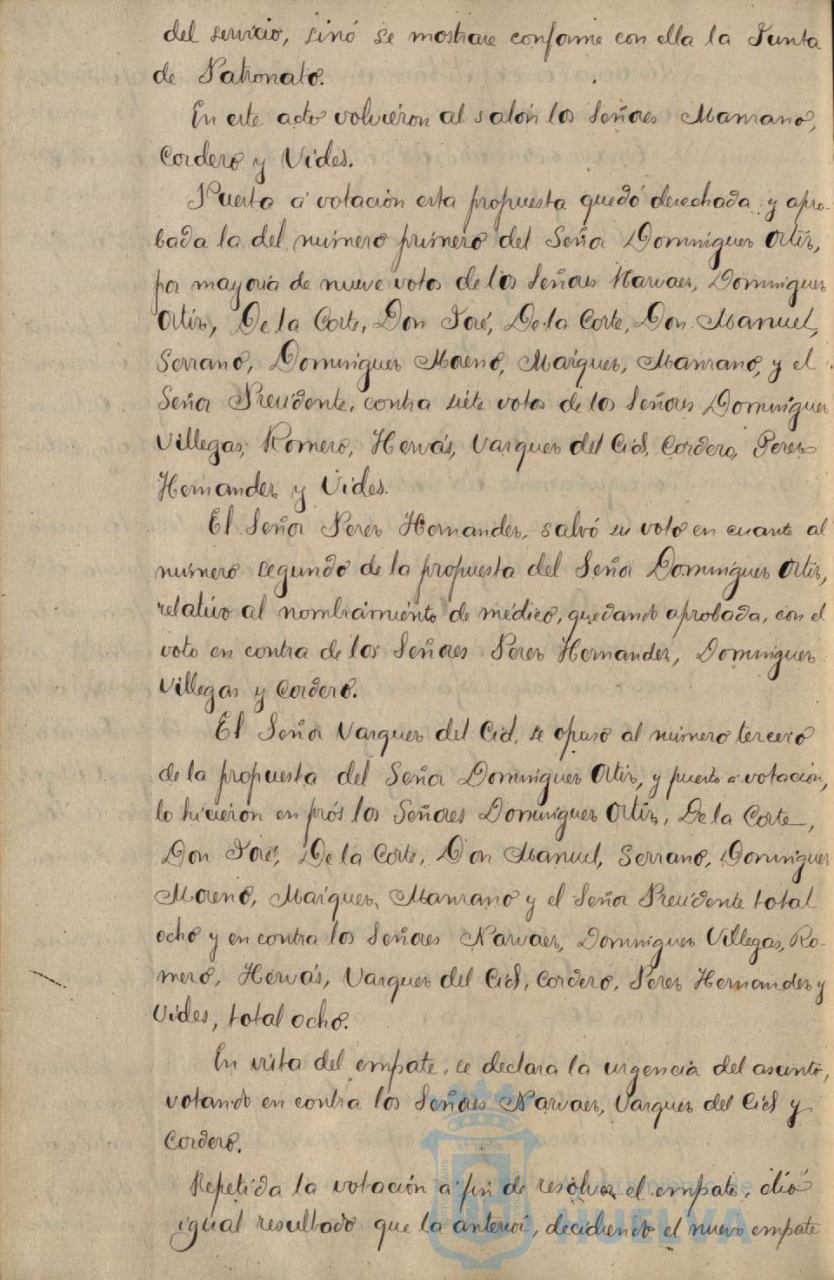 del servicio, sinó se mostrare conforme con ella la Junta
de Patronato.
En este acto volvieron al salón los Señores Manzano,
Cordero y Vides.
Puesta á votación esta propuesta quedó desechada y apro-
bada la del número primero del Señor Dominguez Ortiz,
por mayoria de nueve votos de los Señores Narvaez, Dominguez
Ortiz, De la Corte, Don José, De la Corte, Don Manuel,
Serrano, Dominguez Moreno, Maiquez, Manzano, y el
Señor Presidente, contra siete votos de los Señores Dominguez
Villegas, Romero, Hervás, Vazquez del Cid, Cordero, Perez
Hernandez y Vides.
El Señor Perez Hernandez, salvó su voto en cuanto al
número segundo de la propuesta del Señor Dominguez Ortiz,
relativo al nombramiento de médico, quedando aprobada, con el
voto en contra de los Señores Perez Hernandez, Dominguez
Villegas y Cordero.
El Señor Vazquez del Cid, se opuso al número tercero
de la propuesta del Señor Dominguez Ortiz, y puesto á votación,
lo hicieron en prós los Señores Dominguez Ortiz, De la Corte,
Don José, De la Corte, Don Manuel, Serrano, Dominguez
Moreno, Maiquez, Manzano y el Señor Presidente total
ocho y en contra los Señores Narvaez, Dominguez Villegas, Ro-
mero, Hervás, Vazquez del Cid, Cordero, Perez Hernandez y
Vides, total ocho.
En vista del empate, se declara la urgencia del asunto,
votando en contra los Señores Narvaez, Vazquez del Cid y
Cordero.
Repetida la votación á fin de resolver el empate, dió
igual resultado que la anterior, decidiendo el nuevo empate
HUELVA